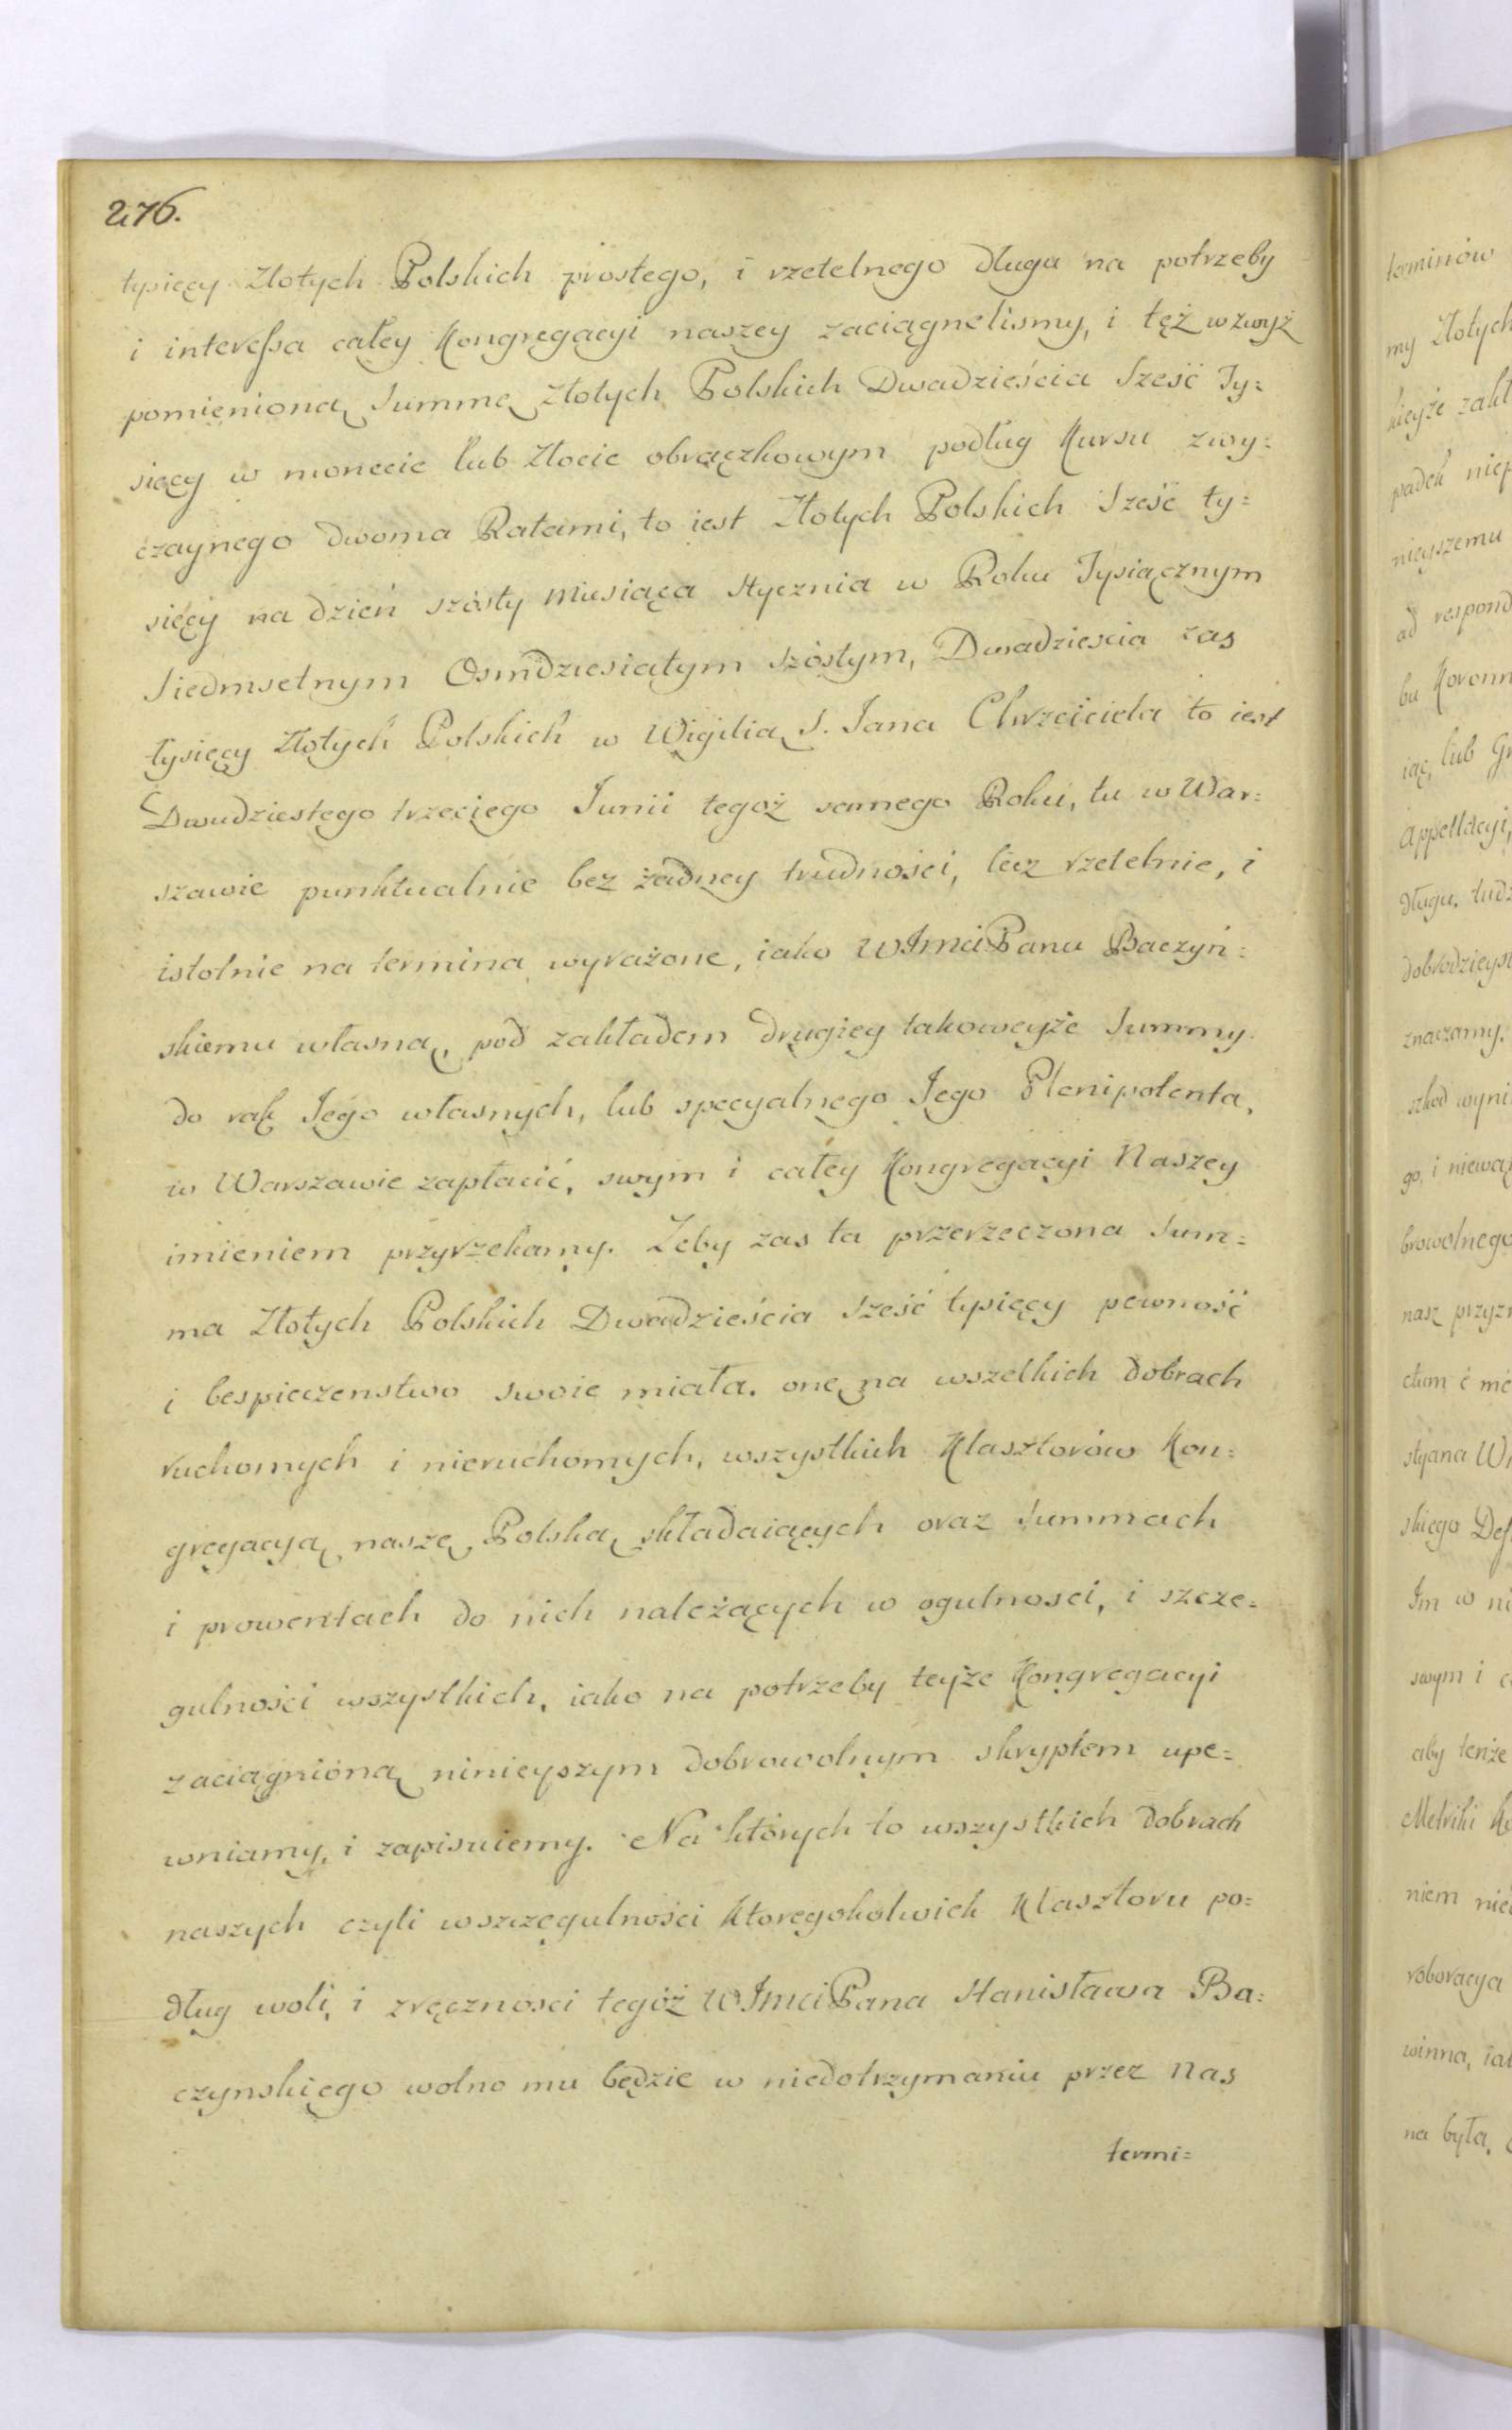 276.
tysięcy Złotych Polskich prostego, i rzetelnego długu na potrzeby
i interessa całey Kongregacyi naszey zaciągnelismy, i tęż wzwyż
pomienioną Summę Złotych Polskich Dwadzieścia Sześć Ty=
sięcy w monecie lub Złocie obrączkowym podług Kursu zwy=
czaynego dwoma Ratami, to iest Złotych Polskich Sześć ty=
sięcy na dzień szósty Miesiąca stycznia w Roku Tysiącznym
Siedmsetnym Osmdziesiątym szóstym, Dwadziescia zas
tysięcy Złotych Polskich w Wigilią S. Jana Chrzciciela to iest
Dwudziestego trzeciego Junii tegoż samego Roku, tu w War=
szawie punktualnie bez żadney trudności, lecz rzetelnie, i
istotnie na termina wyrażone, iako WJmci Panu Baczyń=
skiemu własną, pod zakładem drugiey takoweyże Summy
do rąk Jego własnych, lub specyalnego Jego Plenipotenta,
w Warszawie zapłacić, swym i całey Kongregacyi Naszey
imieniem przyrzekamy. Żeby zas ta przerzeczona Sum=
ma Złotych Polskich Dwadzieścia Sześć tysięcy pewność
i bespieczenstwo swoie miała. onę na wszelkich dobrach
ruchomych i nieruchomych, wszystkich Klasztorów Kon=
gregacyą naszę Polską składaiących oraz Summach
i prowentach do nich należących w ogulnosci, i szcze=
gulności wszystkich, iako na potrzeby teyże Kongregacyi
zaciągnioną ninieyszym dobrowolnym skryptem upe=
wniamy, i zapisuiemy. Na których to wszystkich dobrach
naszych czyli wszczegulności któregokolwiek Klasztoru po=
dług woli, i zręcznosci tegoż WJmci Pana Stanisława Ba=
czynskiego wolno mu będzie w niedotrzymaniu przez nas
termi=
terminów
my Złotych
ad respond
lub
Appellacyi,
długu.
znaczamy.
szkod
go, i
browolnego
nasz
skiego
Im w
swym i
aby tenże
Metriki
niem
roboracya
winna,
na była.